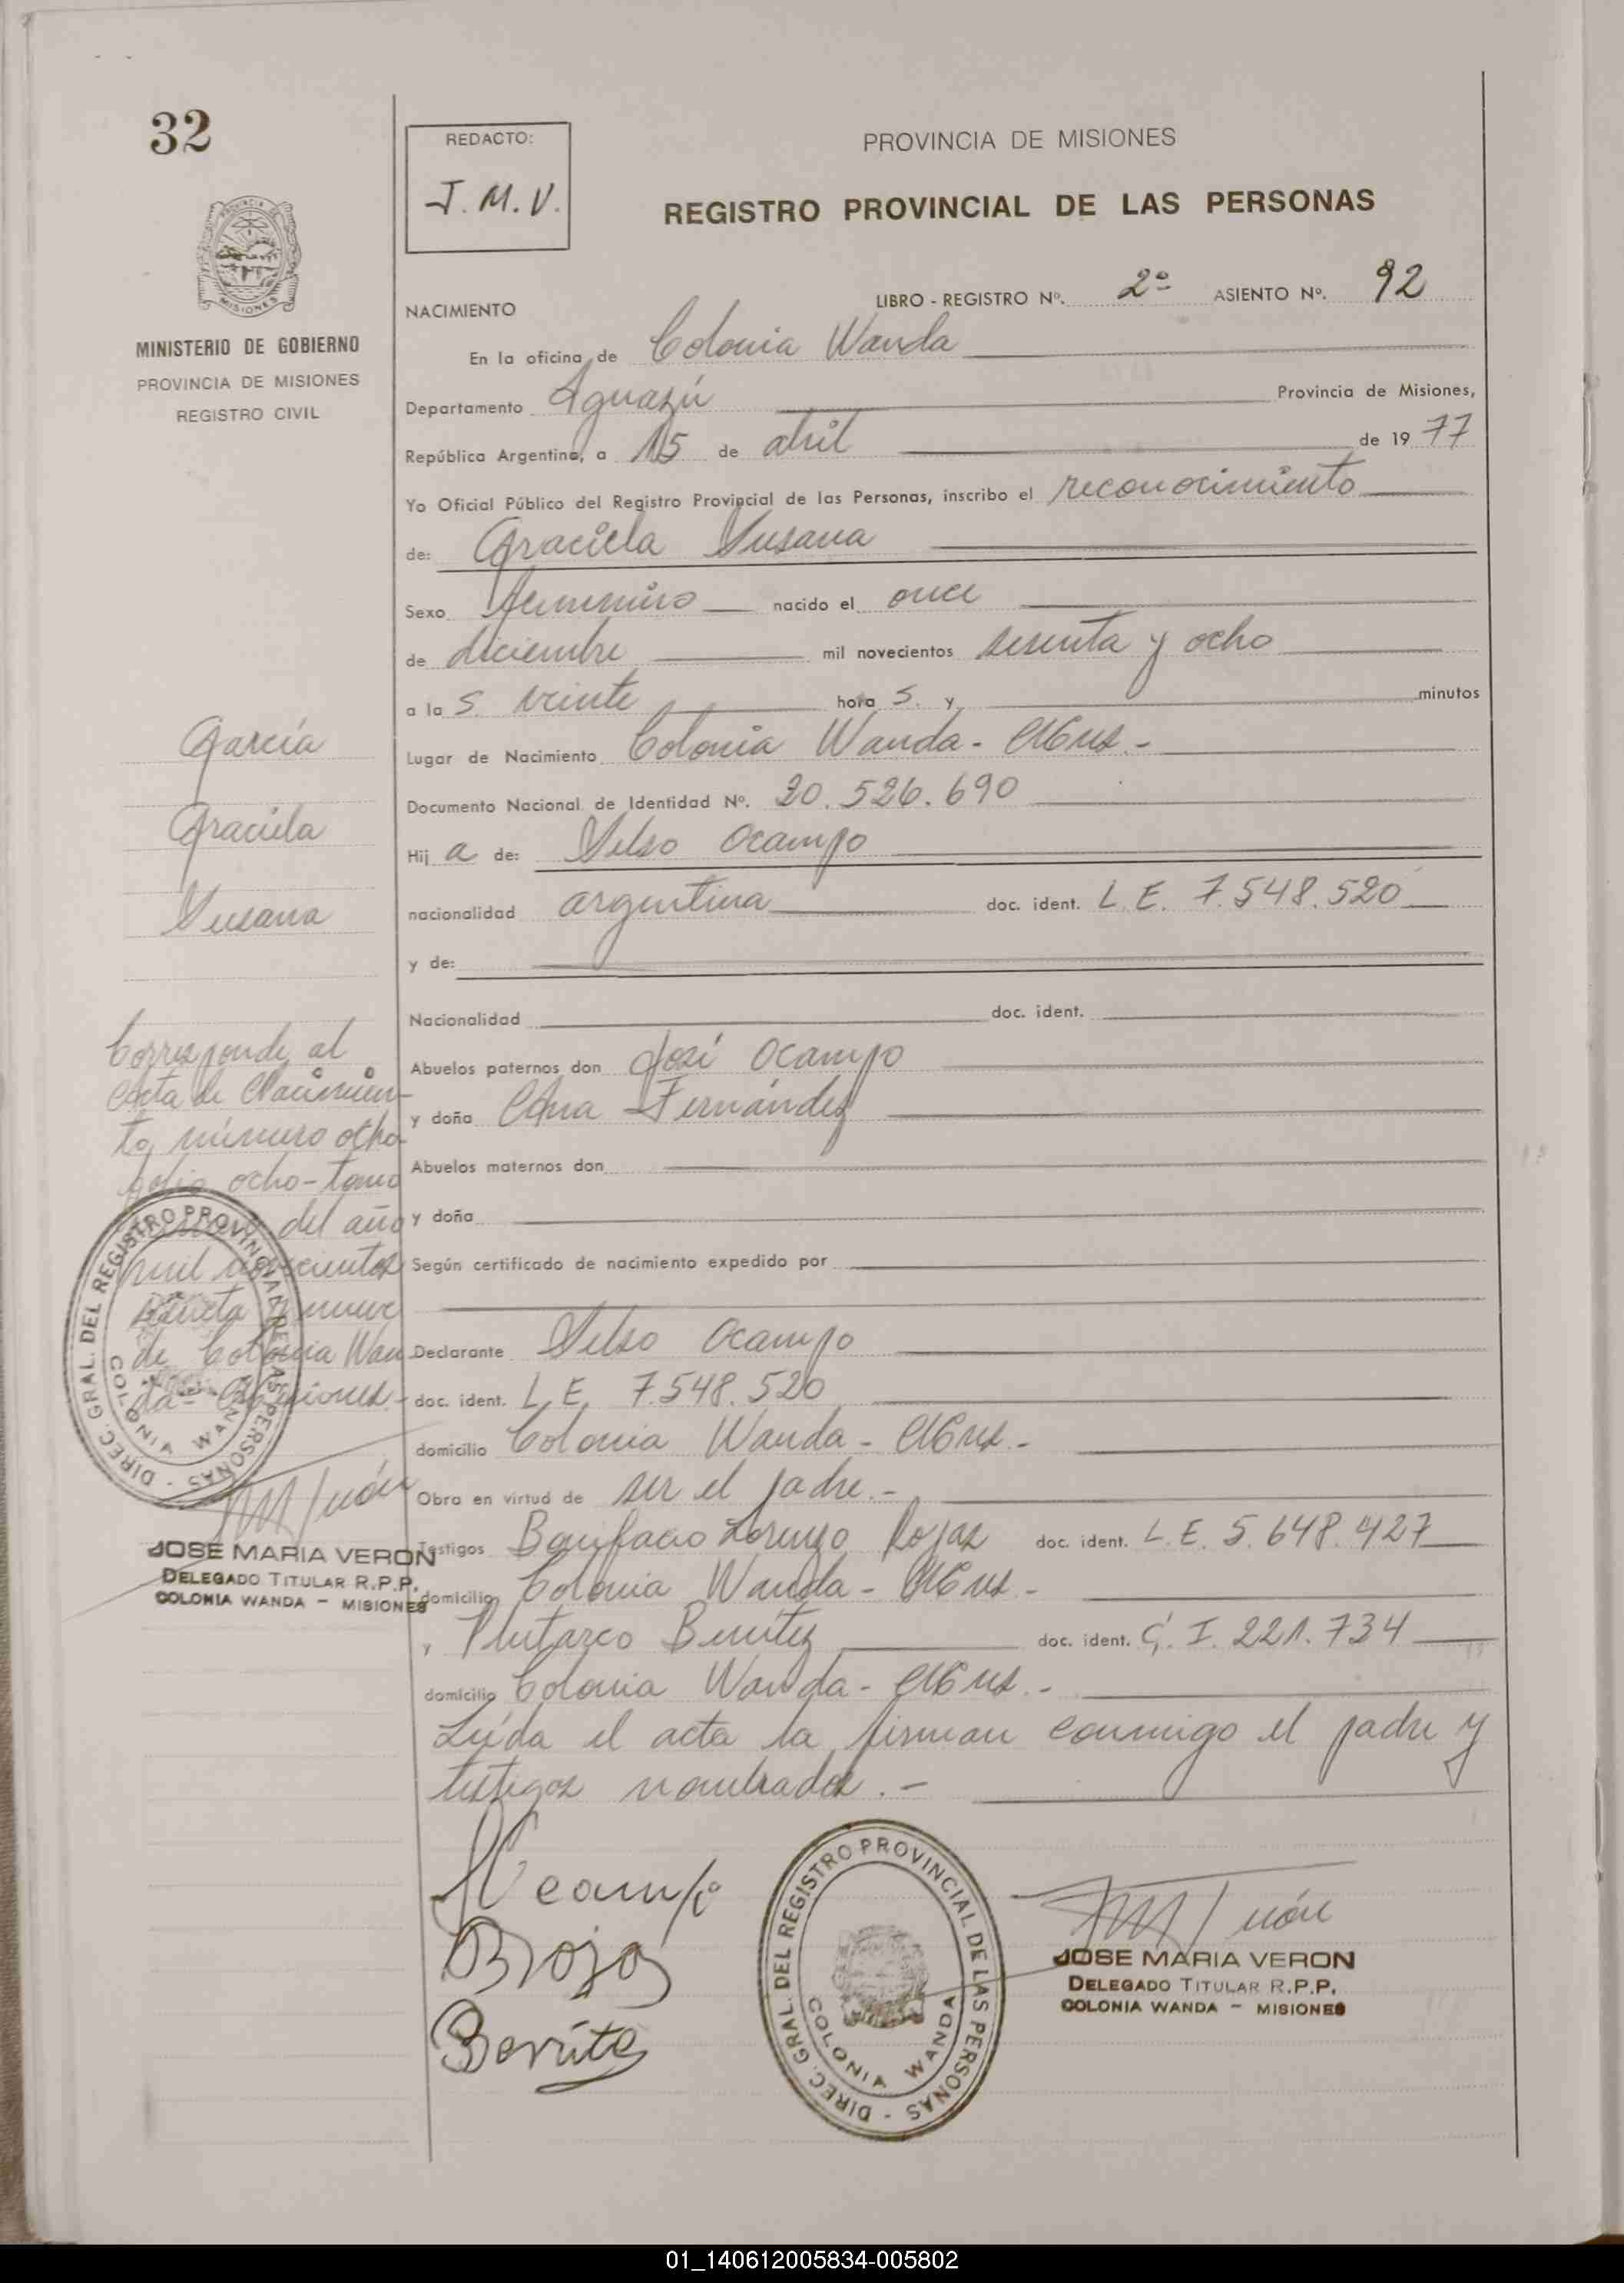 32
REDACTO:
J. M. V.
PROVINCIA DE MISIONES
REGISTRO PROVINCIAL DE LAS PERSONAS
MINISTERIO DE GOBIERNO
PROVINCIA DE MISIONES
REGISTRO CIVIL
NACIMIENTO
LIBRO - REGISTRO Nº. 2º ASIENTO Nº. 92
En la oficina de Colonia Wanda
Departamento Iguazú Provincia de Misiones,
República Argentina, a 15 de abril de 19 77
Yo Oficial Público del Registro Provincial de las Personas, inscribo el reconocimiento
de: Graciela Susana
Sexo femenino nacido el once
de diciembre mil novecientos sesenta y ocho
a la s. veinte hora s. y minutos
Lugar de Nacimiento Colonia Wanda - Mnes. -
Documento Nacional de Identidad Nº. 20.526.690
Hij a de: Selso Ocampo
nacionalidad argentina doc. ident. L. E. 7.548.520
y de:
Nacionalidad doc. ident.
Abuelos paternos don José Ocampo
y doña Ana Fernández
Abuelos maternos don
y doña
Según certificado de nacimiento expedido por
Declarante Selso Ocampo
doc. ident. L. E. 7.548.520
domicilio Colonia Wanda - Mnes. -
Obra en virtud de ser el padre. -
Testigos Bonifacio Lorenzo Rojas doc. ident. L. E. 5.648.427
domicilio Colonia Wanda - Mnes. -
y Plutarco Benítez doc. ident. C. I. 221.734
domicilio Colonia Wanda - Mnes. -
Leída el acta la firman conmigo el padre y
testigos nombrados. -
García
Graciela
Susana
Corresponde al
acta de Nacimien-
to número ocho
folio ocho - tomo
del año
mil novecientos
sesenta y nueve
de Colonia Wan
da - Misiones -
DIREC. GRAL. DEL REGISTRO PROVINCIAL DE LAS PERSONAS -
COLONIA WANDA
JOSE MARIA VERON
DELEGADO TITULAR R.P.P.
COLONIA WANDA - MISIONES
SOcampo
BRojas
Benítez
DIREC. GRAL. DEL REGISTRO PROVINCIAL DE LAS PERSONAS -
COLONIA WANDA
JOSE MARIA VERON
DELEGADO TITULAR R.P.P.
COLONIA WANDA - MISIONES
01_140612005834-005802